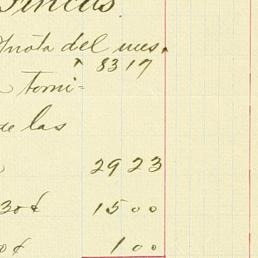 Fincas
nota del mes.
8317
tomi-
de las
2923
30¢ 1500
0¢ 100